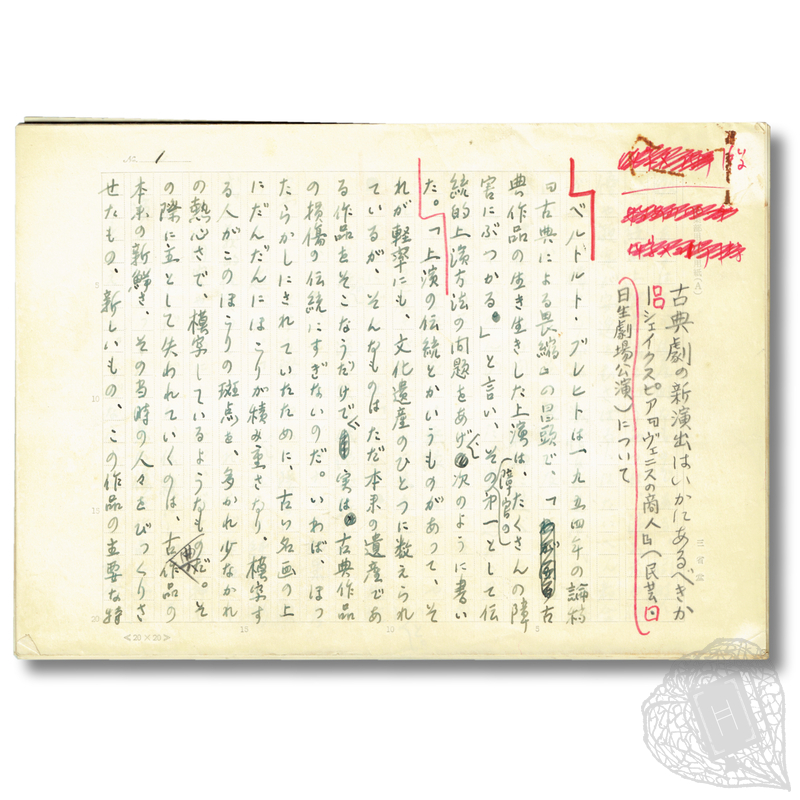 古典劇の新演出はいかにあるべきか
シェイクスピア『ヴェニスの商人』（民芸
日生劇場公演）について
ベルトルト・ブレヒトは一九五四年の論稿
『古典による畏縮』の冒頭で、「古
典作品の生き生きした上演は、たくさんの障
害にぶつかる。」と言い、その（障害の）第一として伝
統的上演方法の問題をあげ、次のように書い
た。「上演の伝統とかいうものがあって、そ
れが軽率にも、文化遺産のひとつに数えられ
ているが、そんなものはただ本来の遺産であ
る作品をそこなうだけで、実は古典作品
の損傷の伝統にすぎないのだ。いわば、ほっ
たらかしにされていたために、古い名画の上
にだんだんにほこりが積み重さなり、模写す
る人がこのほこりの斑点を、多かれ少なかれ
の熱心さで、模写しているようなものだ。そ
の際に主として失われていくのは、古典作品の
本来の新鮮さ、その当時の人々をびっくりさ
せたもの、新しいもの、この作品の主要な特
No. 1
5
10
15
20
15
10
5
＜20×20＞
三省堂
(A)
H